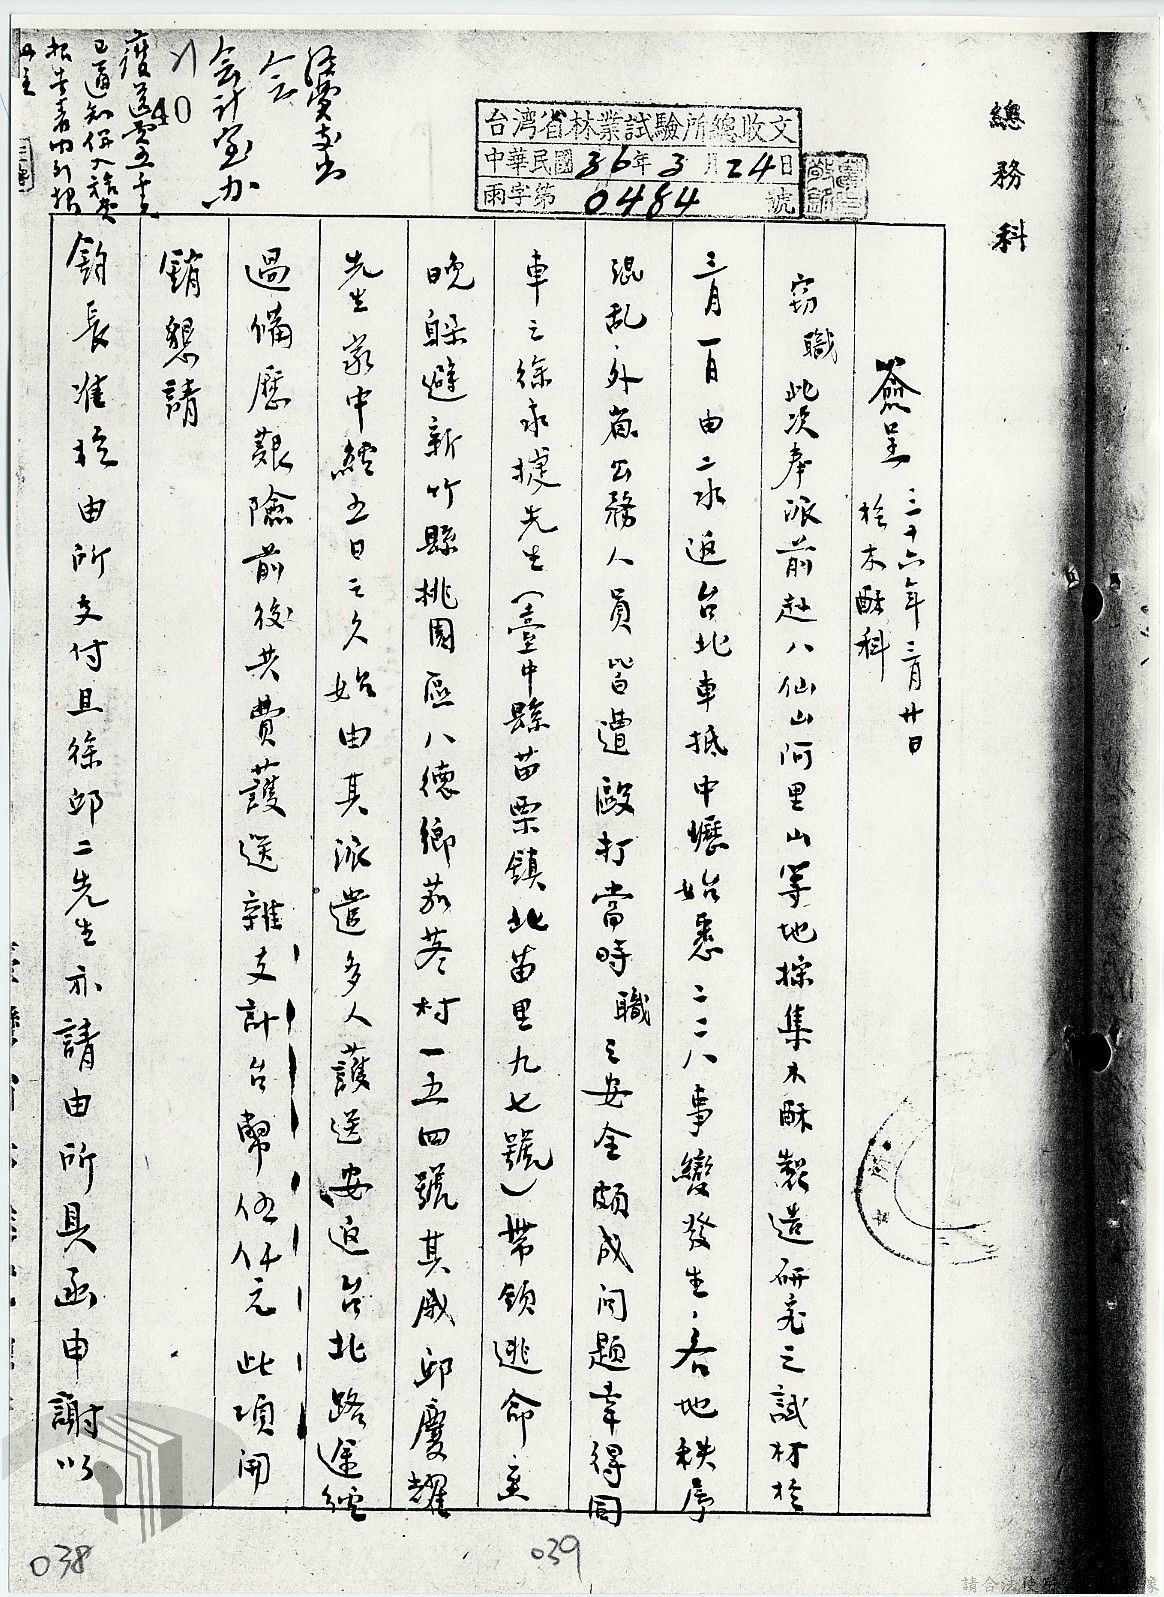 總務科
台湾省林業試驗所總收文
中華民國36年3月24日
雨字第0484號
簽呈 三十六年三月廿日
於木酥科
窃職此次奉派前赴八仙山阿里山等地採集木酥製造研究之試材於
三月一日由二水返台北車抵中壢始悉二二八事變發生，各地秩序
混乱，外省公務人員皆遭毆打當時職之安全頗成问題幸得同
車之徐永捷先生（臺中縣苗栗鎮北苗里九七號）帶領逃命至
晚躲避新竹縣桃園區八德鄉茄苳村一五四號其戚邱慶耀
先生家中經五日之久始由其派遣多人護送安返台北路途經
過備歷艱險前後共費護送雜支計台幣伍仟元此項開
銷懇請
鈞長准於由所支付且徐邱二先生亦請由所具函申謝以
經費支出
会
会計室办
40
038
039